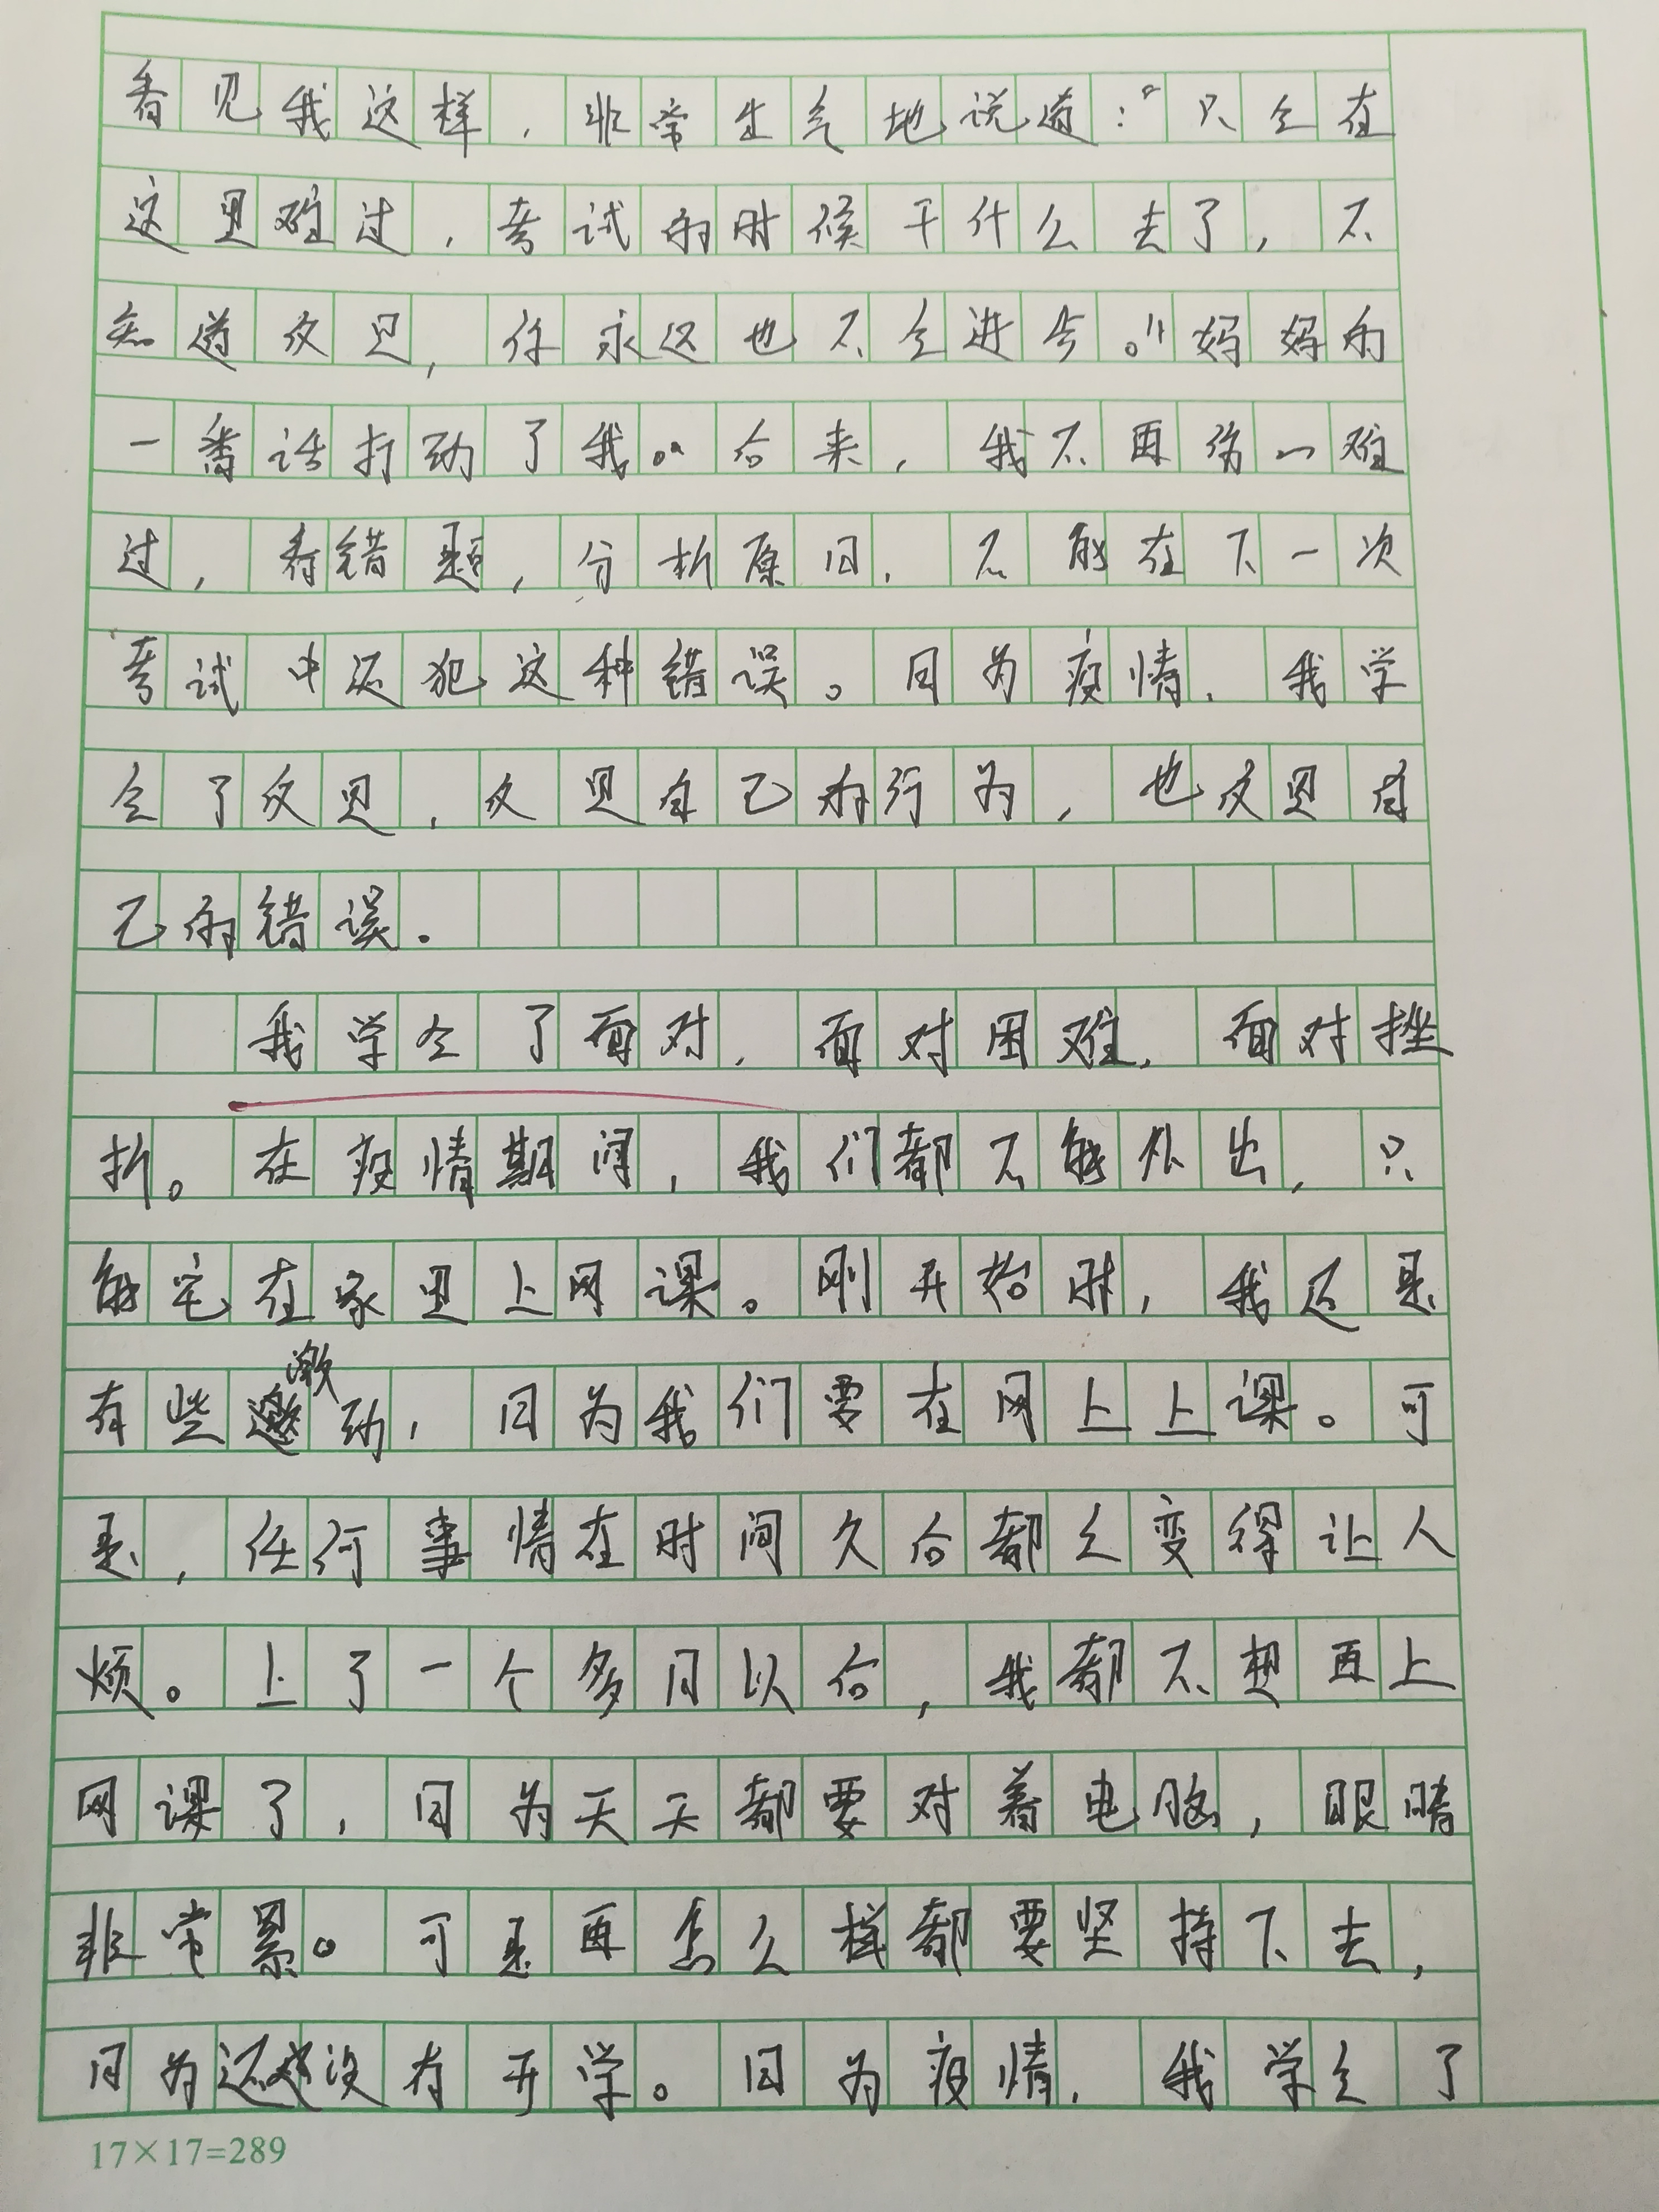 看见我这样，非常生气地说道：“只会在
这里难过，考试的时候干什么去了，不
知道反思，你永远也不会进步。”妈妈的
一番话打动了我。后来，我不再伤心难
过，看错题，分析原因，不能在下一次
考试中还犯这种错误。因为疫情，我学
会了反思，反思自己的行为，也反思自
己的错误。
我学会了面对，面对困难，面对挫
折。在疫情期间，我们都不能外出，只
能宅在家里上网课。刚开始时，我还是
有些激动，因为我们要在网上上课。可
是，任何事情在时间久后都会变得让人
烦。上了一个多月以后，我都不想再上
网课了，因为天天都要对着电脑，眼睛
非常累。可是再怎么样都要坚持下去，
因为还没有开学。因为疫情，我学会了
17×17=289